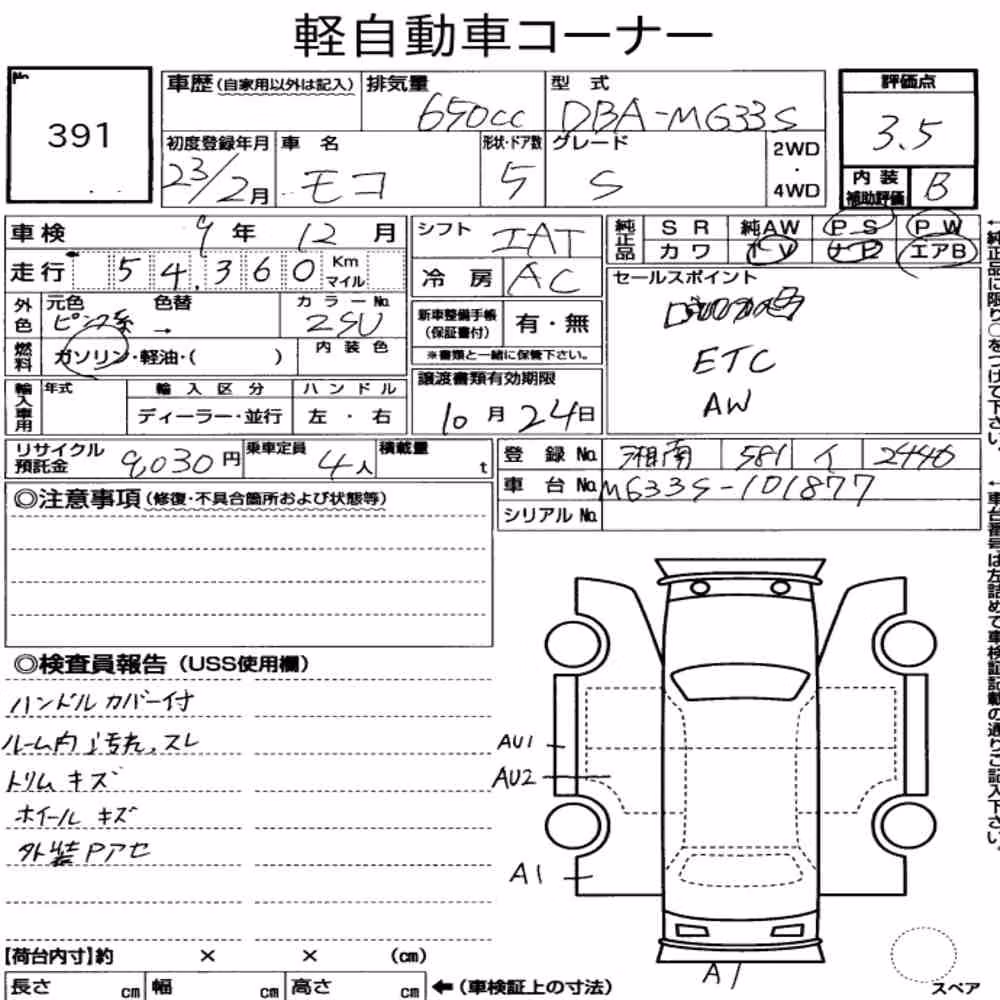 軽自動車コーナー
No
391
車歴(自家用以外は記入) 排気量 650cc 型式 DBA-MG33S
評価点 3.5
初度登録年月 23/2月 車名 モコ 形状・ドア数 5 グレード S 2WD・4WD
内装補助評価 B
車検 9年 12月
シフト IAT
純正品 SR 純AW PS PW
カワ TV ナビ エアB
走行 54,360 Km マイル
冷房 AC
セールスポイント
ETC
AW
外色 元色 ピンク系 → 色替 カラーNo. 25U
新車整備手帳(保証書付) 有・無
※書類と一緒に保管下さい。
燃料 ガソリン・軽油・( ) 内装色
譲渡書類有効期限
10月24日
輸入車用 年式 輸入区分 ハンドル
ディーラー・並行 左・右
リサイクル預託金 9,030円 乗車定員 4人 積載量 t
登録No. 湘南 581 イ 2440
車台No. MG33S-101877
シリアルNo.
◎注意事項(修復・不具合箇所および状態等)
◎検査員報告(USS使用欄)
ハンドルカバー付
ルーム内汚れ、スレ
トリムキズ
ホイールキズ
外装Pアセ
AU1
AU2
A1
A1
[荷台内寸]約 × × (cm)
長さ cm 幅 cm 高さ cm ←(車検証上の寸法)
スペア
←純正品に限り○をつけて下さい。
←車台番号は左詰めで車検証記載の通りご記入下さい。